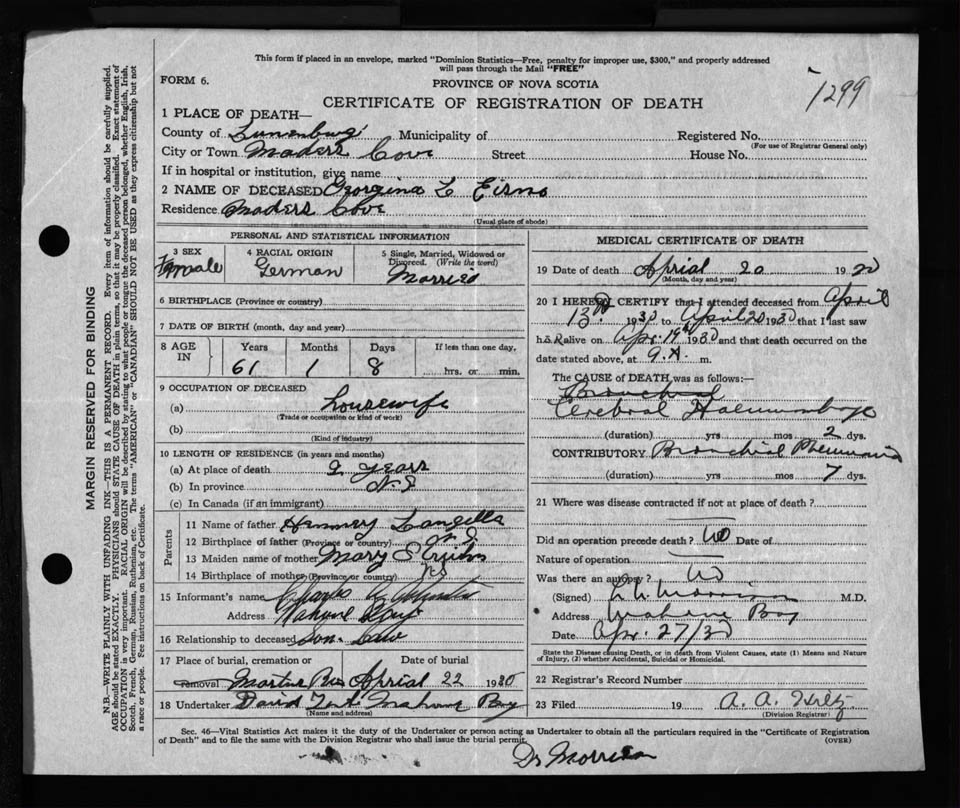 This form if placed in an envelope, marked "Dominion Statistics—Free, penalty for improper use, $300," and properly addressed
will pass through the Mail "FREE"
FORM 6.
PROVINCE OF NOVA SCOTIA
1299
CERTIFICATE OF REGISTRATION OF DEATH
1 PLACE OF DEATH—
County of Lunenburg Municipality of
Registered No.
(For use of Registrar General only)
City or Town Maders Cove Street House No.
If in hospital or institution, give name
2 NAME OF DECEASED Georgina L Eisno
Residence Maders Cove
(Usual place of abode)
PERSONAL AND STATISTICAL INFORMATION
3 SEX Female
4 RACIAL ORIGIN German
5 Single, Married, Widowed or
Divorced. (Write the word)
Married
6 BIRTHPLACE (Province or country)
7 DATE OF BIRTH (month, day and year)
8 AGE IN Years Months Days If less than one day,
61 1 8 hrs. or min.
9 OCCUPATION OF DECEASED
(a) housewife
(Trade or occupation or kind of work)
(b)
(Kind of industry)
10 LENGTH OF RESIDENCE (in years and months)
(a) At place of death 9 years
(b) In province N.S
(c) In Canada (if an immigrant)
Parents
11 Name of father Langille
12 Birthplace of father (Province or country) N.S.
13 Maiden name of mother Mary
14 Birthplace of mother (Province or country) NS
15 Informant's name Charles
Address
16 Relationship to deceased Son. Law
17 Place of burial, cremation or Date of burial
removal April 22 1930
18 Undertaker David Mahone Bay
(Name and address)
MEDICAL CERTIFICATE OF DEATH
19 Date of death Aprial 20 1930
(Month, day and year)
20 I HEREBY CERTIFY that I attended deceased from April
13th 1930 to April 20 1930 that I last saw
h.er alive on Apr. 19th 1930 and that death occurred on the
date stated above, at 9.A. m.
The CAUSE OF DEATH was as follows:—
Bronchial
Cerebral Haemorrhage
(duration) yrs mos 2 dys.
CONTRIBUTORY Bronchial Pneumonia
(duration) yrs mos 7 dys.
21 Where was disease contracted if not at place of death?
Did an operation precede death? No Date of
Nature of operation
Was there an autopsy? No
(Signed) Morrison M.D.
Address Mahone Bay
Date Apr. 27/30
State the Disease causing Death, or in death from Violent Causes, state (1) Means and Nature
of Injury, (2) whether Accidental, Suicidal or Homicidal.
22 Registrar's Record Number
23 Filed 19 A. A. Hiltz
(Division Registrar)
Sec. 46—Vital Statistics Act makes it the duty of the Undertaker or person acting as Undertaker to obtain all the particulars required in the "Certificate of Registration
of Death" and to file the same with the Division Registrar who shall issue the burial permit.
(OVER)
Dr Morrison
MARGIN RESERVED FOR BINDING
N.B.—WRITE PLAINLY WITH UNFADING INK—THIS IS A PERMANENT RECORD. Every item of information should be carefully supplied.
AGE should be stated EXACTLY. PHYSICIANS should STATE CAUSE OF DEATH in plain terms, so that it may be properly classified. Exact statement of
OCCUPATION is very important. RACIAL ORIGIN will be described by stating to what people or tongue the deceased person belonged, whether English, Irish,
Scotch, French, German, Russian, Ruthenian, etc. The terms "AMERICAN" or "CANADIAN" SHOULD NOT BE USED as they express citizenship but not
a race or people. Fee instructions on back of Certificate.